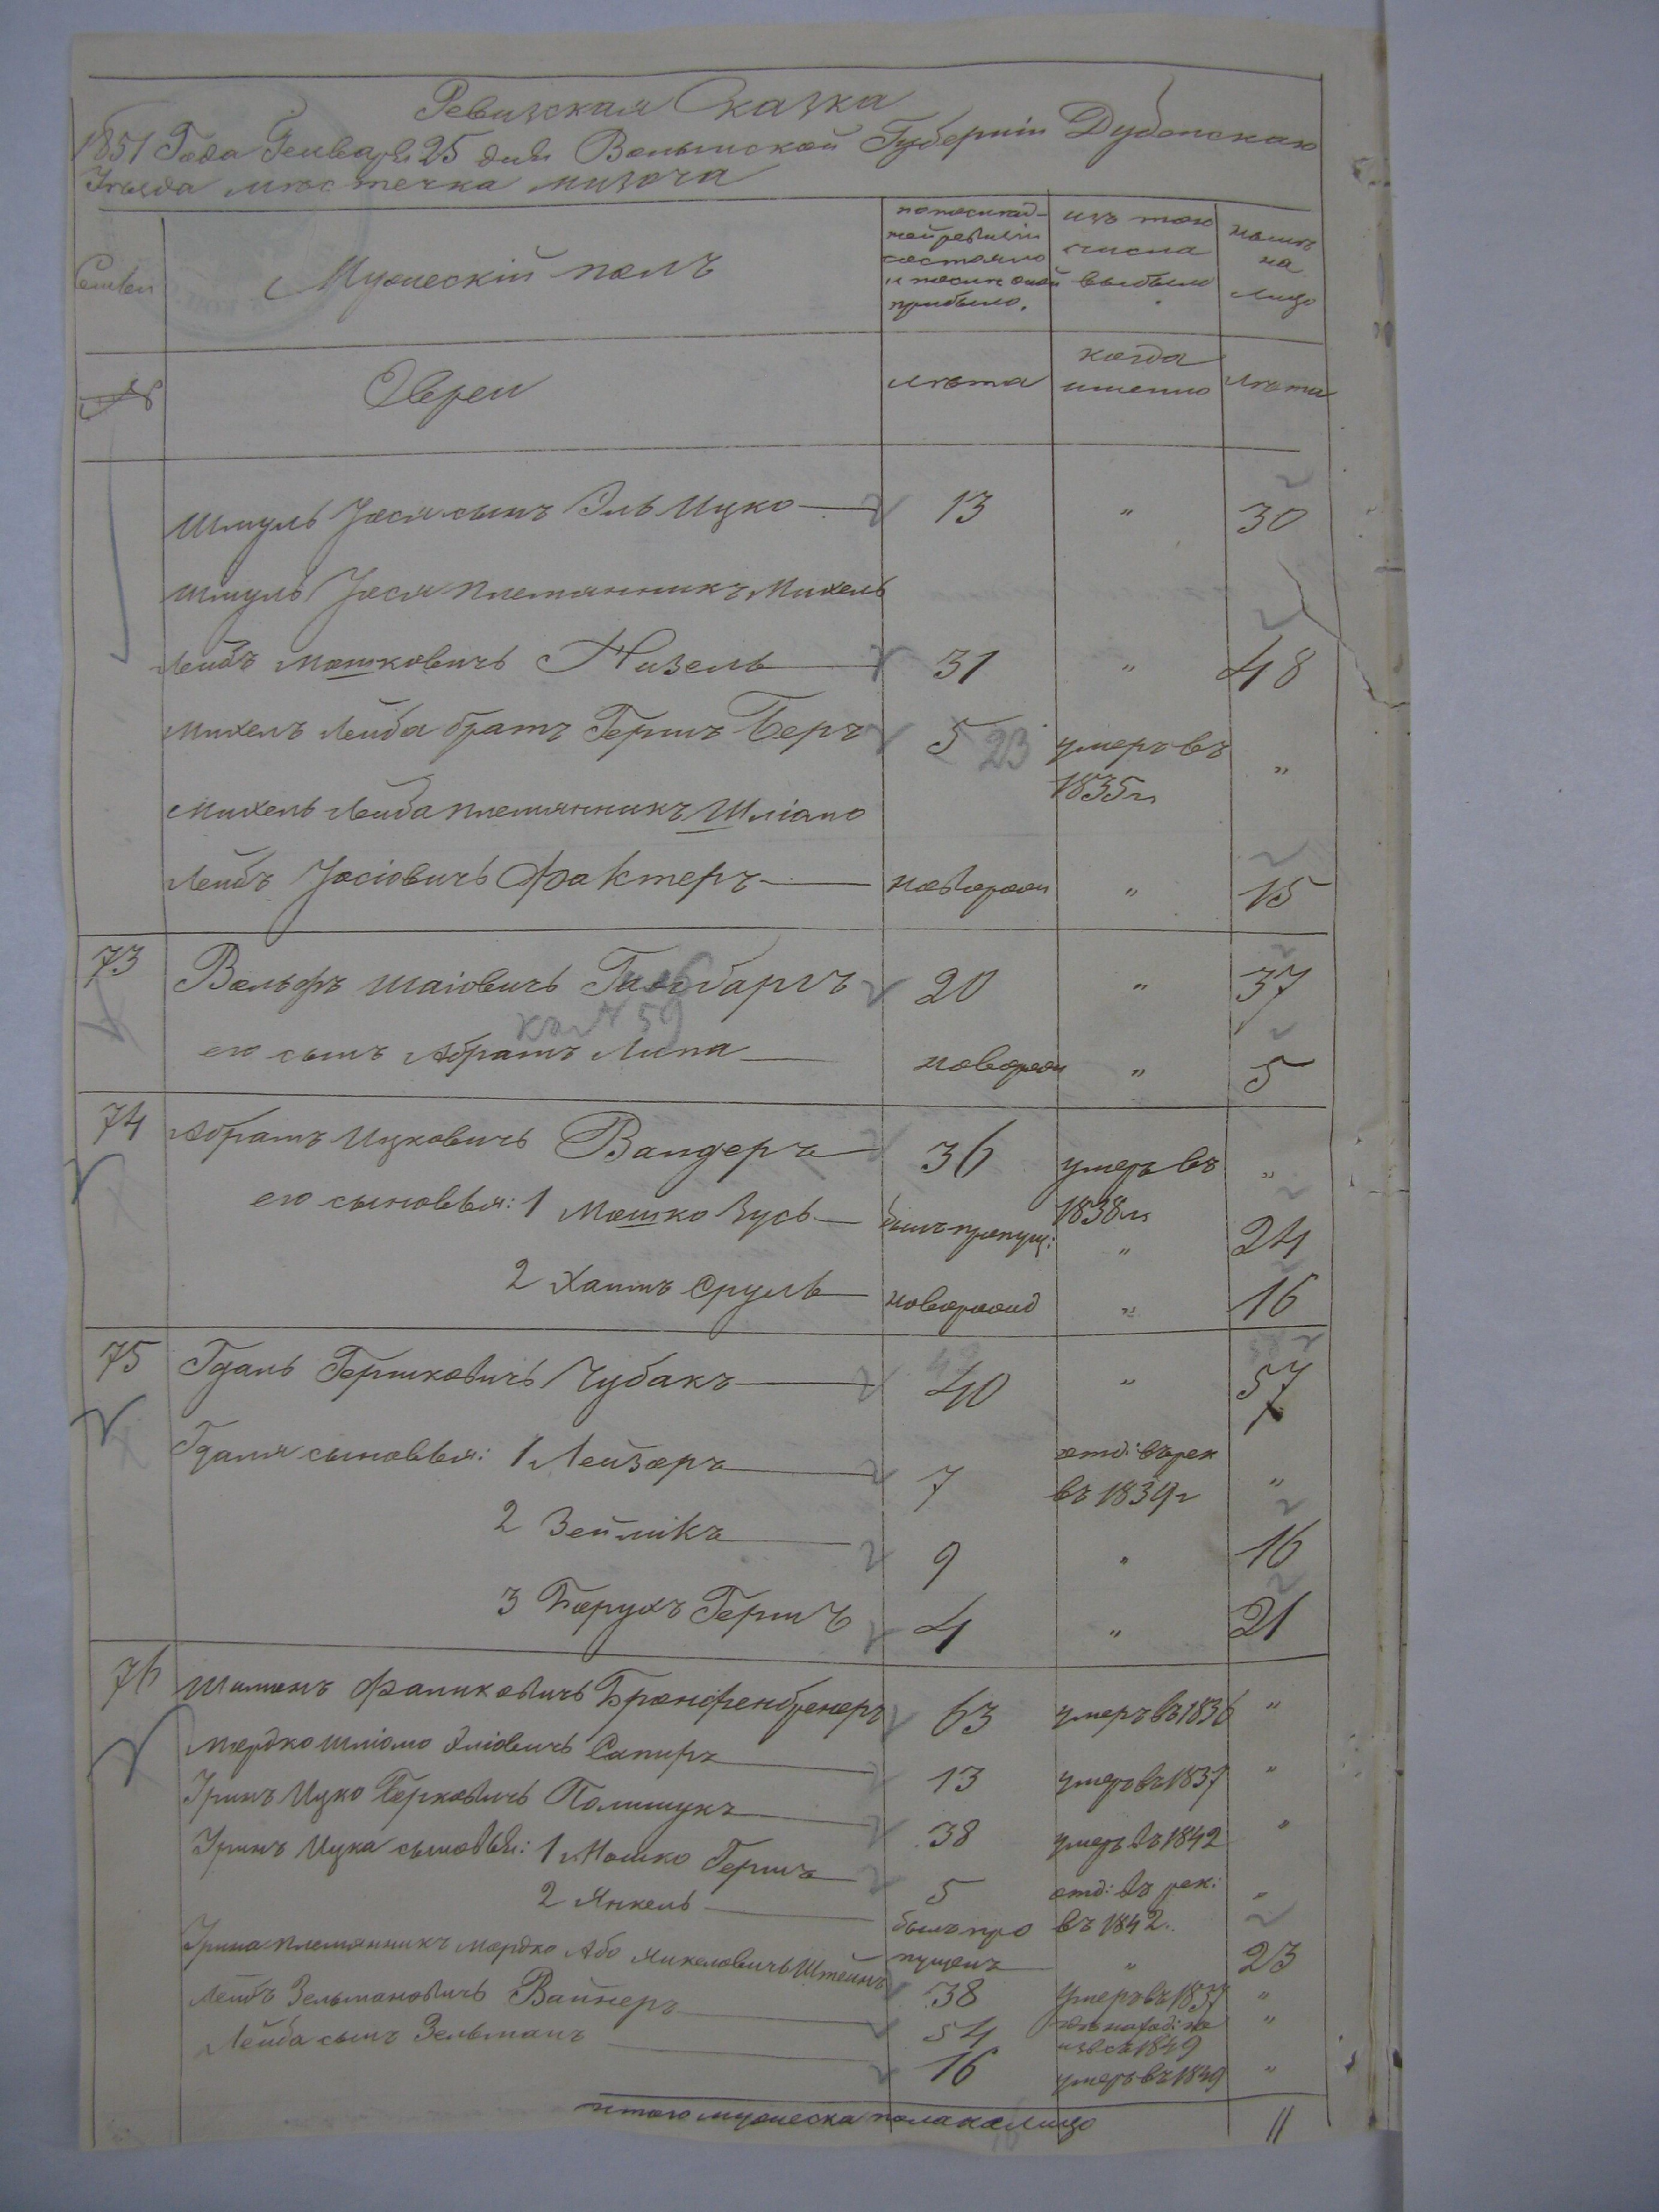 Ревизская Сказка
1851 Года Генваря 25 дня Волынской Губерніи Дубенскаго
Уѣзда мѣстечка мизоча
Семьи
Мужескій полъ
по последней ревизіи состояло и после оной прибыло.
изъ того числа выбыло
нынѣ на лицо
№
Евреи
лѣта
когда именно
лѣта
Шмуль Іося сынъ Эль Ицко 13 " 30
Шмуль Іося племянникъ Михель
Лейбъ Мошковичъ Низель 31 " 48
Михель Лейба братъ Гершъ Беръ 5 23 умеръ въ 1835 г "
Михель Лейба племянникъ Шліомо
Лейбъ Іосіовичъ Фактеръ новорожд " 15
73 Вольфъ Шаіовичъ Гольбаргъ 20 " 37
къ № 59
его сынъ Абрамъ Липа новорож " 5
74 Абрамъ Ицковичъ Вандеръ 36 умеръ въ 1838 г "
его сыновья: 1 Мошко Зусь былъ пропущ: " 24
2 Хаимъ Сруль новорожд " 16
75 Гдаль Гершковичъ Чубакъ 40 " 57
Гдаля сыновья: 1 Лейзоръ 7 отд: въ рек въ 1839 г "
2 Зейликъ 9 " 16
3 Борухъ Гершъ 4 " 21
76 Шимонъ Фаликовичъ Бронфенбренеръ 63 умеръ въ 1836 "
Мордко Шліомо Эліовичъ Сапиръ 13 умеръ въ 1837 "
Уринъ Ицко Берковичъ Полищукъ 38 умеръ въ 1842 "
Уринъ Ицка сыновья: 1 Мошко Гершъ 5 отд: въ рек: въ 1842. "
2 Янкель былъ пропущенъ " 23
Урина племянникъ Мордко Або Янкеловичъ Штейнъ 38 умеръ въ 1837 "
Лейбъ Зельмановичъ Вайнеръ 54 1849 "
Лейба сынъ Зельманъ 16 умеръ въ 1849 "
итого мужеска пола на лицо 11